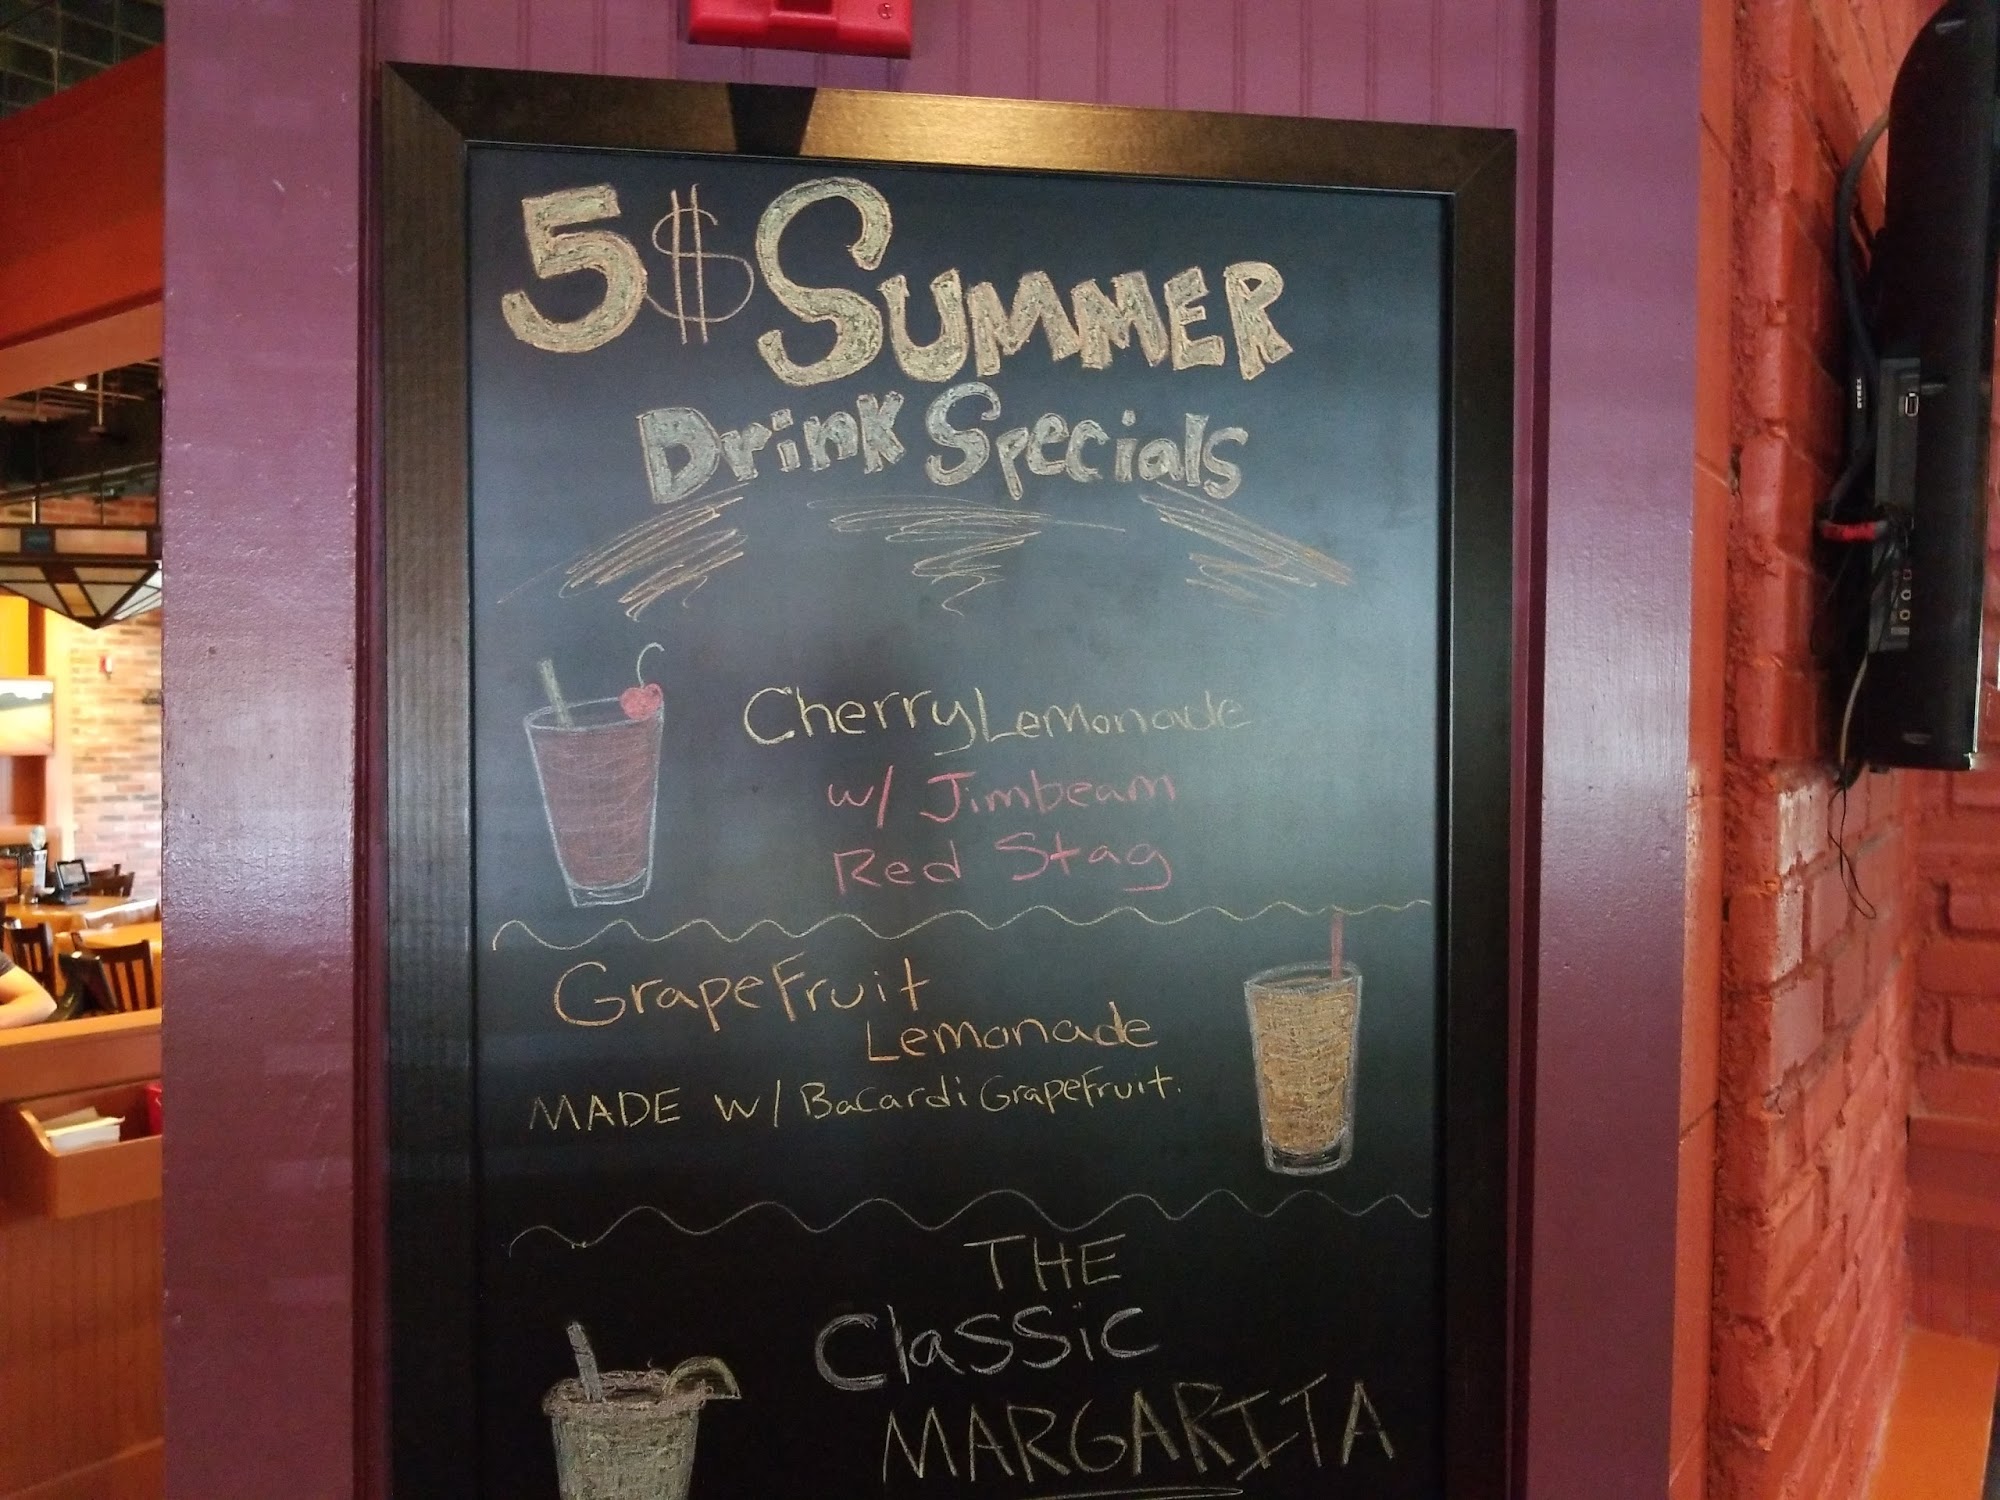 5$ SUMMER
Drink Specials
Cherry Lemonade
w/ Jimbeam
Red Stag
Grapefruit
Lemonade
MADE w/ Bacardi Grapefruit.
THE
Classic
MARGARITA
DYNEX